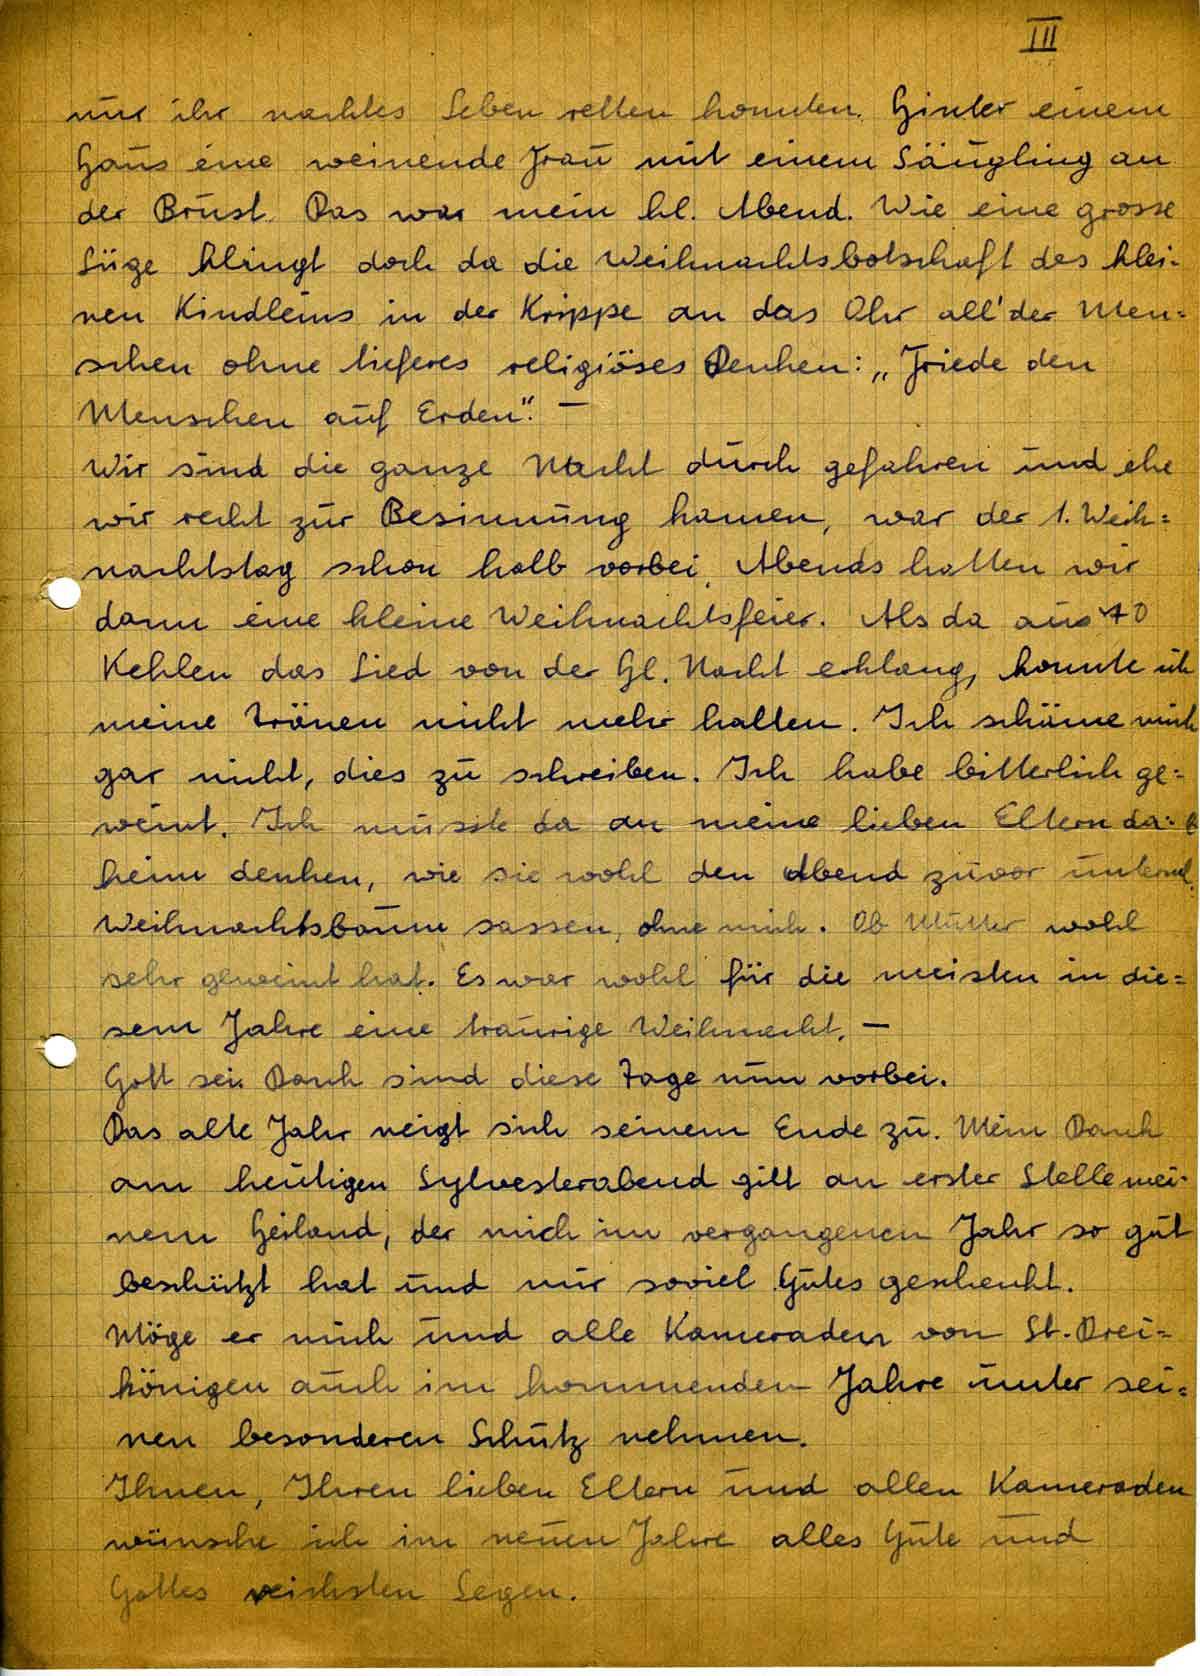 III
nur ihr nacktes Leben retten konnten. Hinter einem
Haus eine weinende Frau mit einem Säugling an
der Brust. Das war mein hl. Abend. Wie eine grosse
Lüge klingt doch da die Weihnachtsbotschaft des klei-
nen Kindleins in der Krippe an das Ohr all' der Men-
schen ohne tieferes religiöses Denken: „Friede den
Menschen auf Erden“. –
Wir sind die ganze Nacht durch gefahren und ehe
wir recht zur Besinnung kamen, war der 1. Weih-
nachtstag schon halb vorbei. Abends hatten wir
dann eine kleine Weihnachtsfeier. Als da aus 40
Kehlen das Lied von der Hl. Nacht erklang, konnte ich
meine Tränen nicht mehr halten. Ich schäme mich
gar nicht, dies zu schreiben. Ich habe bitterlich ge-
weint. Ich musste da an meine lieben Eltern da-
heim denken, wie sie wohl den Abend zuvor unterm
Weihnachtsbaum sassen, ohne mich. Ob Mutter wohl
sehr geweint hat. Es war wohl für die meisten in die-
sem Jahre eine traurige Weihnacht. –
Gott sei Dank sind diese Tage nun vorbei.
Das alte Jahr neigt sich seinem Ende zu. Mein Dank
am heutigen Sylvesterabend gilt an erster Stelle mei-
nem Heiland, der mich im vergangenen Jahr so gut
beschützt hat und mir soviel Gutes geschenkt.
Möge er mich und alle Kameraden von St. Drei-
königen auch im kommenden Jahre unter sei-
nen besonderen Schutz nehmen.
Ihnen, Ihren lieben Eltern und allen Kameraden
wünsche ich im neuen Jahre alles Gute und
Gottes reichsten Segen.